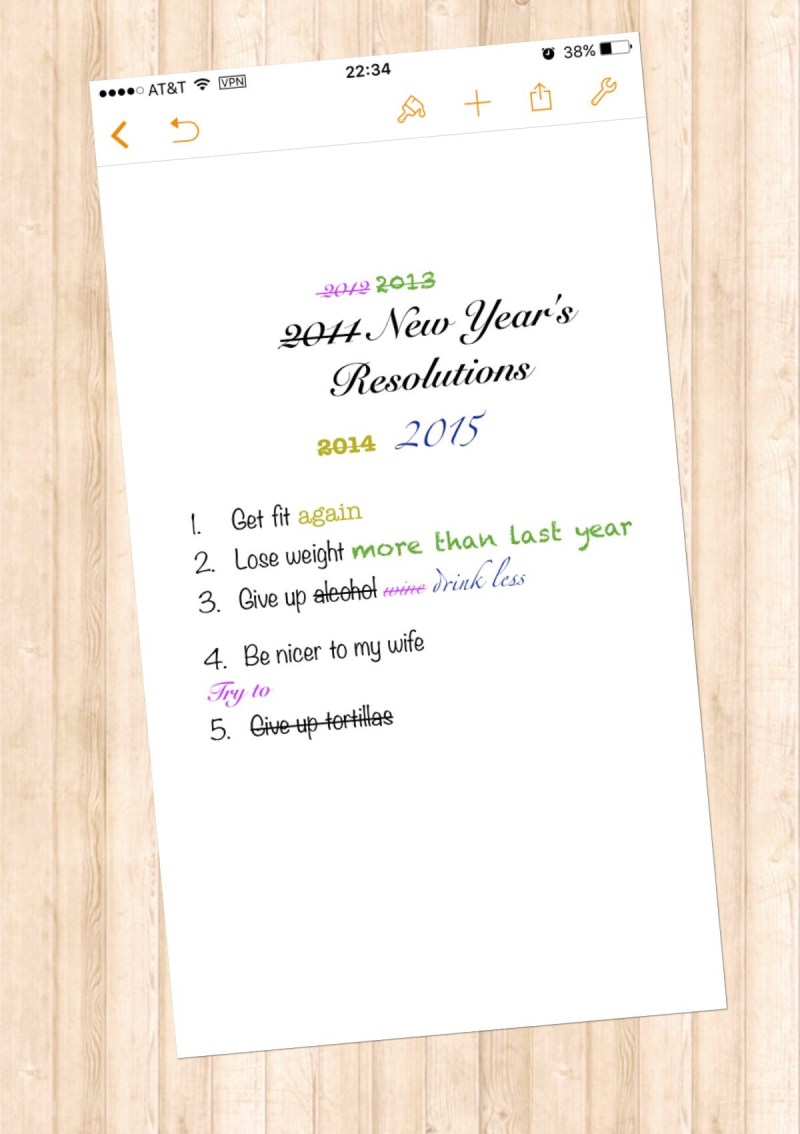 AT&T VPN 22:34 38%
2012 2013
2011 New Year's
Resolutions
2014 2015
1. Get fit again
2. Lose weight more than last year
3. Give up alcohol wine drink less
4. Be nicer to my wife
Try to
5. Give up tortillas